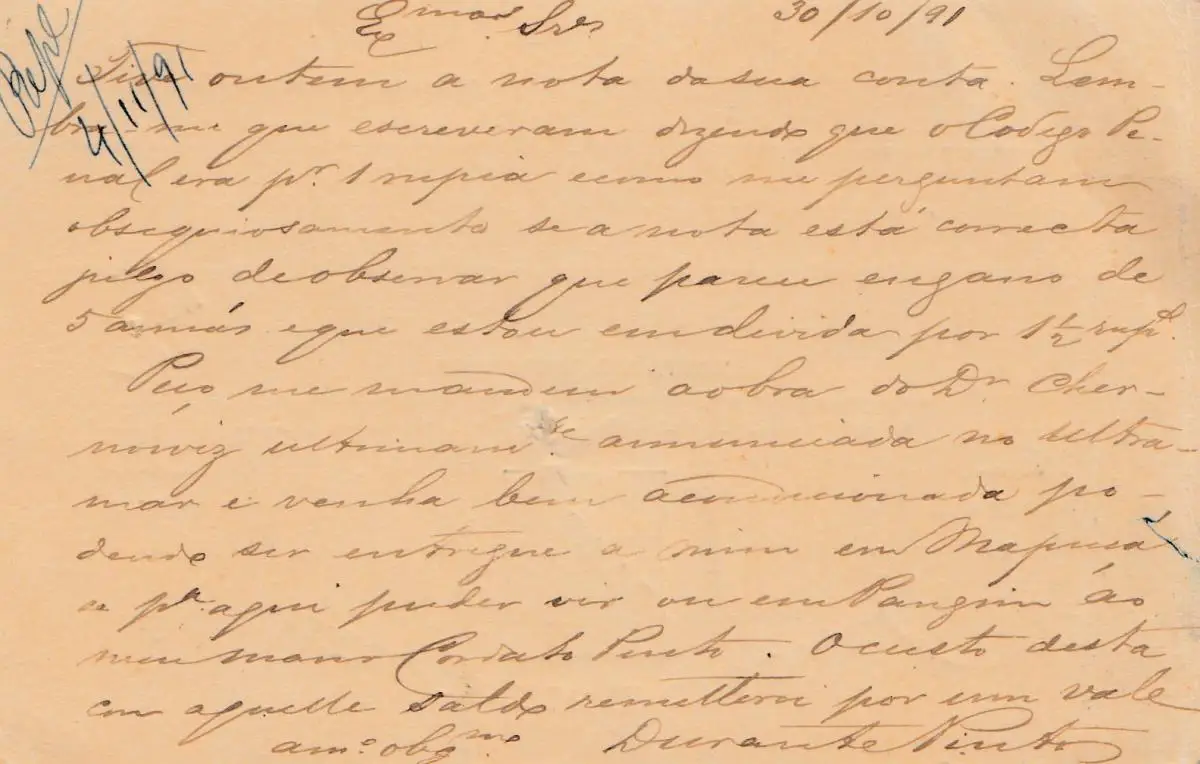 Exmos Srs 30/10/91
Tive ontem a nota da sua conta. Lem-
bra-me que escreveram dizendo que o Codigo Pe-
nal era pr. 1 rupia e como me perguntam
obsequiosamente se a nota está correcta
de observar que engano de
5 e que estou em divida por 1 1/2 rup.
Peço me mandem a obra do Dr Cher-
noviz ultimamte annunciada no Ultra-
mar e venha bem acondicionada po-
dendo ser entregue a mim em Mapuca
se pa. aqui puder vir ou em Pangim ao
meu mano Pinto. O custo desta
com aquelle saldo remetterei por um vale
amo. obgmo. Durante Pinto
4/11/91